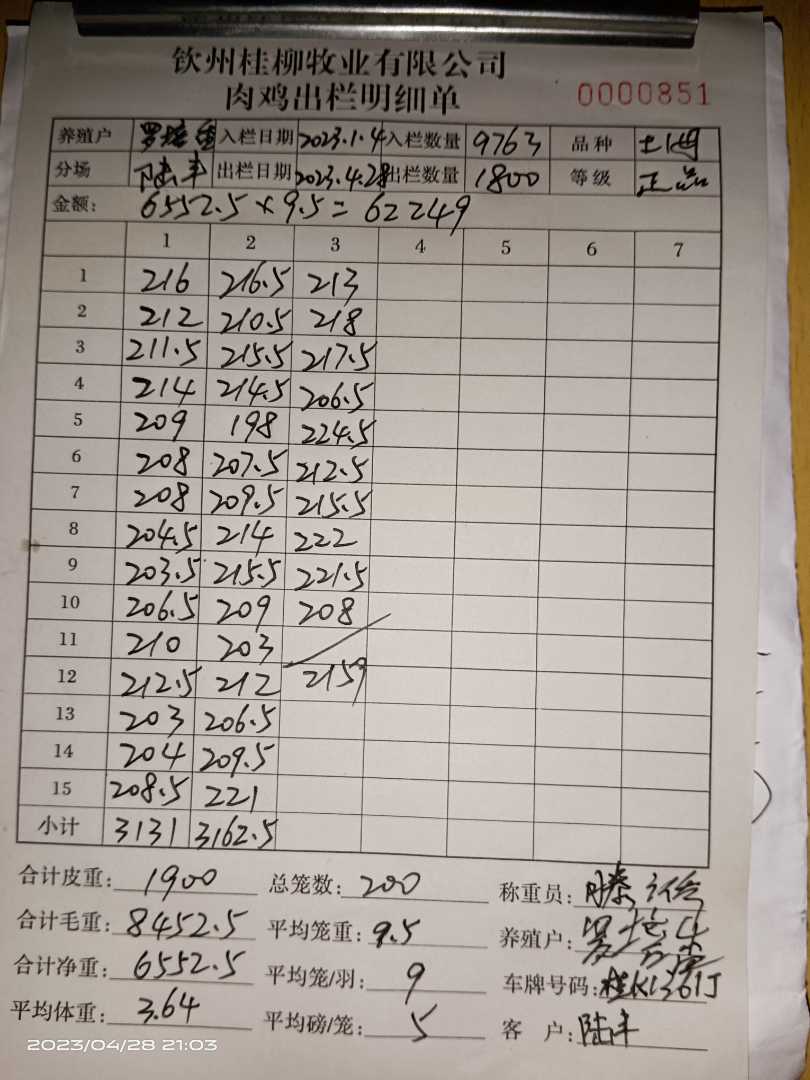 钦州桂柳牧业有限公司
肉鸡出栏明细单 0000851
养殖户 入栏日期 2023.1.4 入栏数量 9763 品种
分场 陆丰 出栏日期 2023.4.28 出栏数量 1800 等级 正品
金额: 6552.5×9.5=62249
1 2 3 4 5 6 7
1 216 216.5 213
2 212 210.5 218
3 211.5 215.5 217.5
4 214 214.5 206.5
5 209 198 224.5
6 208 207.5 212.5
7 208 209.5 215.5
8 204.5 214 222
9 203.5 215.5 221.5
10 206.5 209 208
11 210 203
12 212.5 212 2159
13 203 206.5
14 204 209.5
15 208.5 221
小计 3131 3162.5
合计皮重: 1900 总笼数: 200 称重员:
合计毛重: 8452.5 平均笼重: 9.5 养殖户:
合计净重: 6552.5 平均笼/羽: 9 车牌号码: 桂K1361J
平均体重: 3.64 平均磅/笼: 5 客户: 陆丰
2023/04/28 21:03